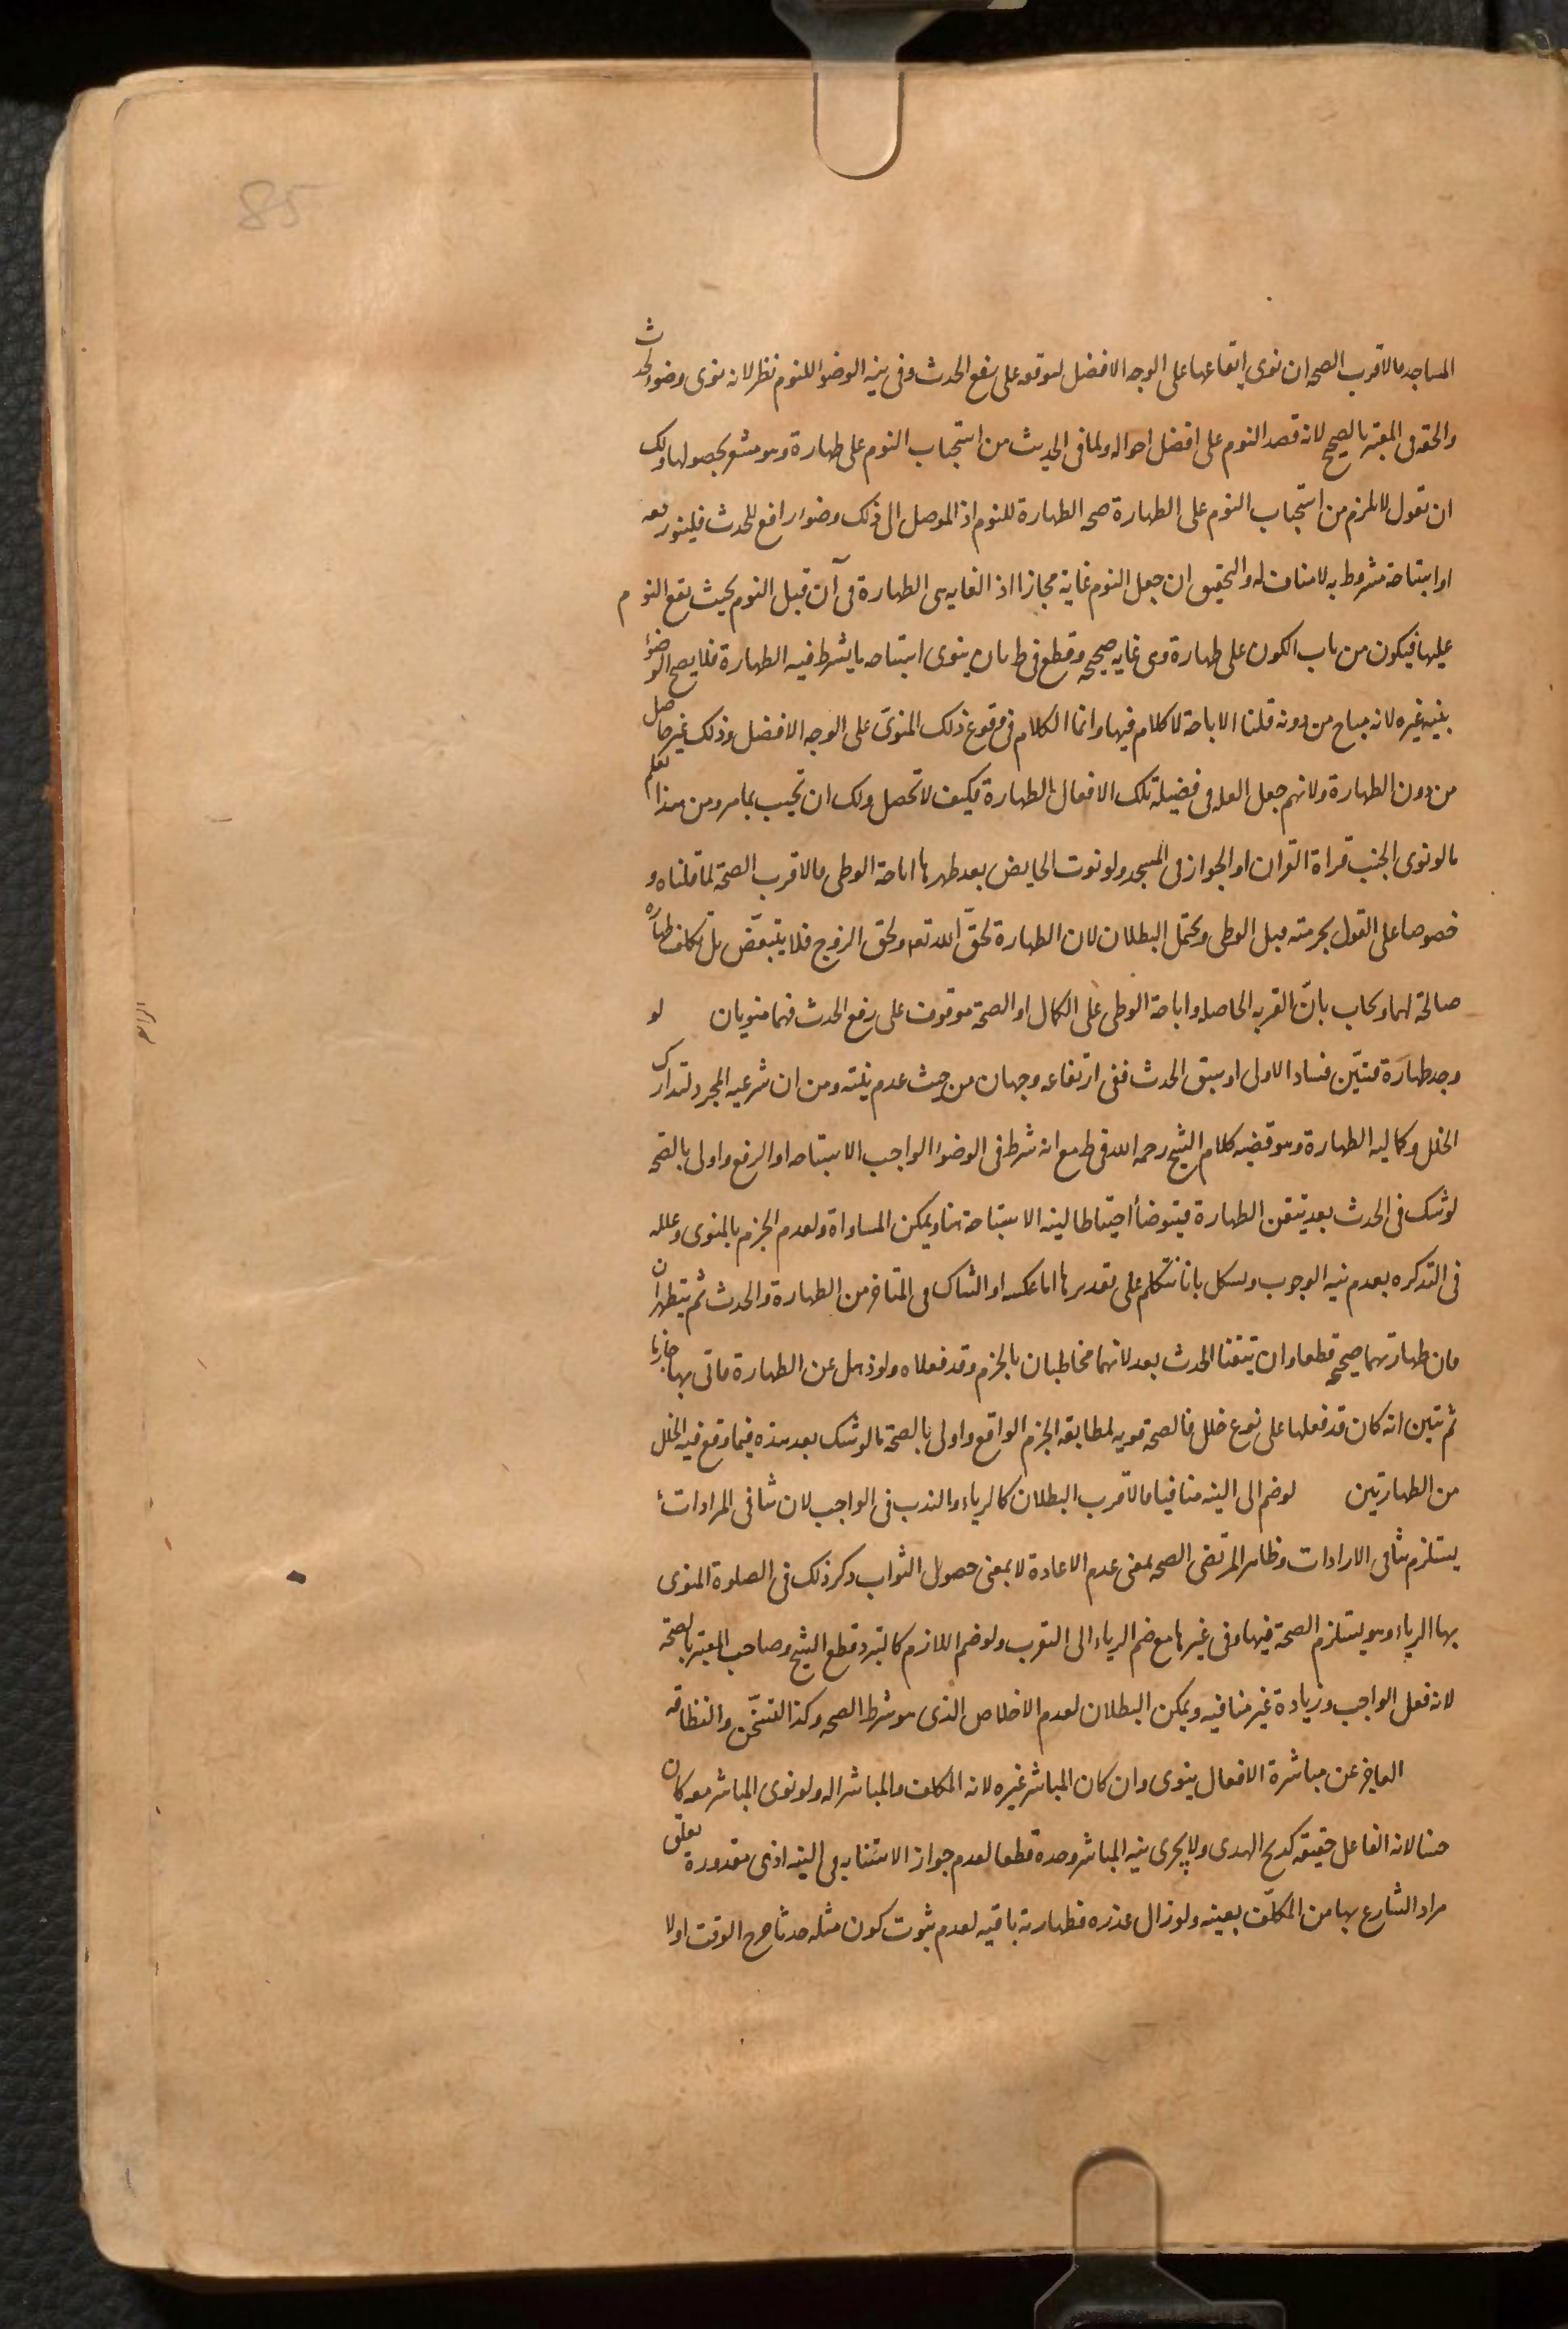 85
المساجد فالاقرب الصحه ان نوى ايقاعها على الوجه الافضل لتوقفه على رفع الحدث وفى نيه الوضوء للنوم نظر لانه نوى وضوء الحدث
والحقه فى المعتبر بالصحيح لانه قصد النوم على افضل احواله ولما فى الحديث من استحباب النوم على طهارة وهو مشعر بحصولها ولك
ان تقول لا يلزم من استحباب النوم على الطهارة صحه الطهارة للنوم اذ الموصل الى ذلك وضوء رافع للحدث فلينو رفعه
او استباحة مشروط به لا مناف له والتحقيق ان جعل النوم غاية مجازا اذ الغايه هى الطهارة فى آن قبل النوم بحيث يقع النوم
عليها فيكون من باب الكون على طهارة وهى غايه صحيحه وقطع فى ط بان ينوى استباحه ما يشترط فيه الطهارة فلا يصح الوضوء
بنيه غيره لانه مباح من دونه قلنا الاباحة لا كلام فيها وانما الكلام فى وقوع ذلك المنوىّ على الوجه الافضل وذلك غير حاصل
من دون الطهارة ولانهم جعل العله فى فضيلة تلك الافعال الطهارة فكيف لا تحصل ولك ان تجيب بما مر ومن هذا يعلم
ما لو نوى الجنب قراة القران او الجواز فى المسجد ولو نوت الحايض بعد طهرها اباحة الوطى فالاقرب الصحة لما قلناه و
خصوصا على القول بحرمته قبل الوطى ويحتمل البطلان لان الطهارة لحقّ الله تعه ولحق الزوج فلا يتبعّض بل تكلف طهارة
صالحة لهما ويجاب بانّ القربه الحاصله واباحة الوطى على الكمال او الصحة موقوف على رفع الحدث فهما منويان لو
وجد طهارة فتبيّن فساد الاولى او سبق الحدث ففى ارتفاعه وجهان من حيث عدم نيته ومن ان شرعيه المجرد لتدارك
الخلل وكماليه الطهارة وهو قضيه كلام الشيخ رحمه الله فى ط مع انه شرط فى الوضوء الواجب الاستباحه او الرفع واولى بالصحه
لو شك فى الحدث بعد تيقن الطهارة فيتوضأ احتياطا لنيه الاستباحة هنا ويمكن المساواة ولعدم الجزم بالمنوى وعلله
فى التذكره بعدم نيه الوجوب ويشكل بانا نتكلم على تقديرها اما عكسه او الشاك فى المتاخر من الطهارة والحدث ثم يتطهران
فان طهارتهما صحيحه قطعا وان تيقنا الحدث بعد لانهما مخاطبان بالجزم وقد فعلاه ولو ذهل عن الطهارة فاتى بها جازما
ثم تبين انه كان قد فعلها على نوع خلل فالصحه قويه لمطابقه الجزم الواقع واولى بالصحة ما لو شك بعد هذه فيما وقع فيه الخلل
من الطهارتين لو ضم الى النيه منافيا فالاقرب البطلان كالرياء والندب فى الواجب لان تنافى المرادات
يستلزم تنافى الارادات وظاهر المرتضى الصحه بمعنى عدم الاعادة لا بمعنى حصول الثواب ذكر ذلك فى الصلوة المنوى
بها الرياء وهو يستلزم الصحة فيها وفى غيرها مع ضم الرياء الى التقرب ولو ضم اللازم كالتبرد قطع الشيخ وصاحب المعتبر بالصحة
لانه فعل الواجب وزيادة غير منافيه ويمكن البطلان لعدم الاخلاص الذى هو شرط الصحه وكذا التسخّن والنظافه
العاجز عن مباشرة الافعال ينوى وان كان المباشر غيره لانه المكلف والمباشر اله ولو نوى المباشر معه كان
حسنا لانه الفاعل حقيقه كذبح الهدى ولا يجزى نيه المباشر وحده قطعا لعدم جواز الاستنابه فى النيه اذ هى مقدورة تعلق
مراد الشارع بها من المكلّف بعينه ولو زال عذره فطهارته باقيه لعدم ثبوت كون مثله حدثا خرج الوقت اولا